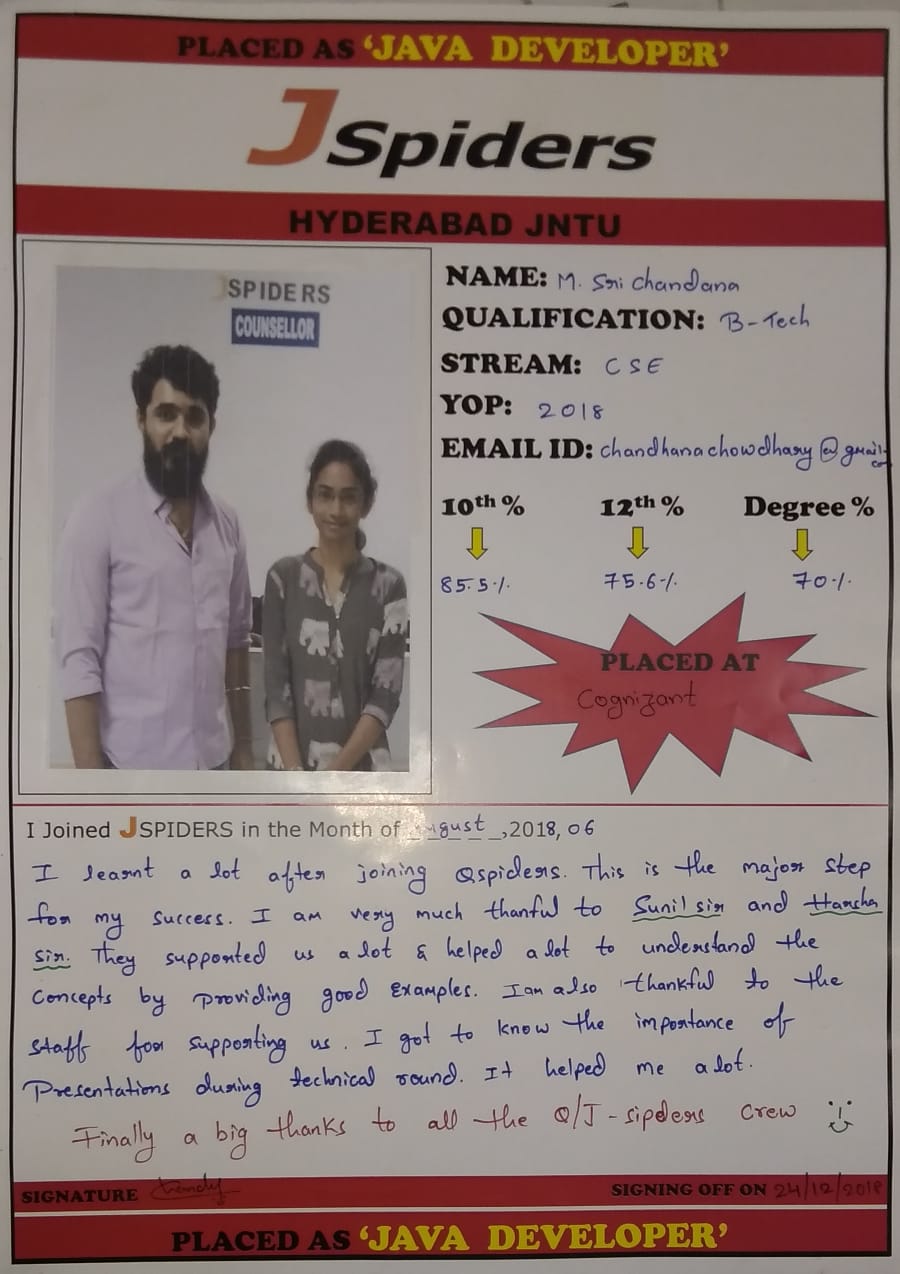 PLACED AS ‘JAVA DEVELOPER’
JSpiders
HYDERABAD JNTU
JSPIDERS
COUNSELLOR
NAME: M. Sri Chandana
QUALIFICATION: B-Tech
STREAM: CSE
YOP: 2018
EMAIL ID: chandhanachowdhary@gmail.co
10th % 12th % Degree %
85.5% 75.6% 70%
PLACED AT
Cognizant
I Joined JSPIDERS in the Month of August, 2018, 06
I learnt a lot after joining Qspiders. This is the major step
for my success. I am very much thanful to Sunil sir and Harsha
sir. They supported us a lot & helped a lot to understand the
concepts by providing good Examples. I am also thankful to the
staff for supporting us. I got to know the importance of
Presentations during technical round. It helped me a lot.
Finally a big thanks to all the Q/J-sipders crew
SIGNATURE
SIGNING OFF ON 24/12/2018
PLACED AS ‘JAVA DEVELOPER’